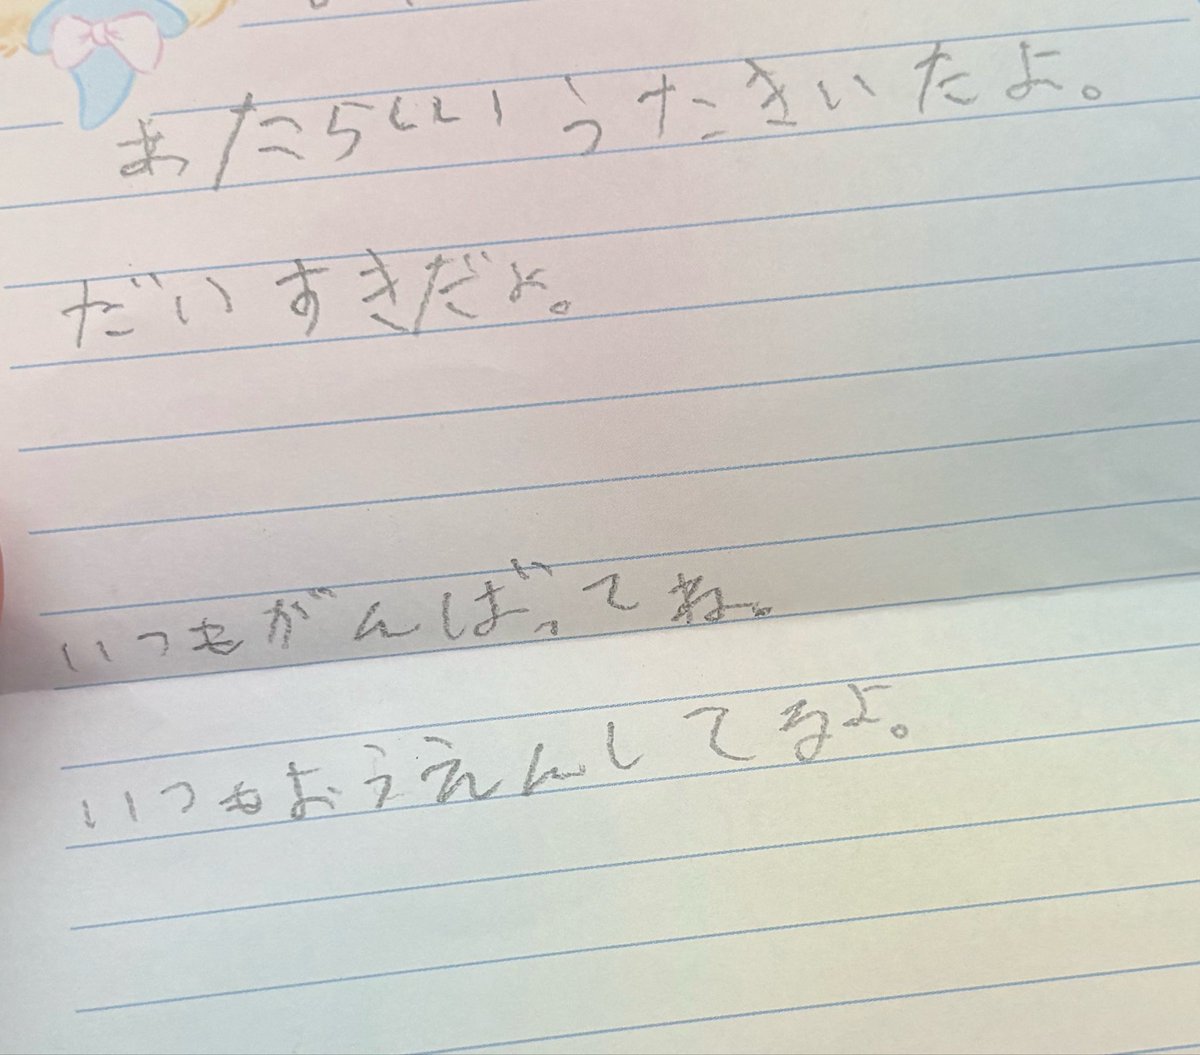 あたらしいうたきいたよ。
だいすきだよ。
いつもがんばってね。
いつもおうえんしてるよ。